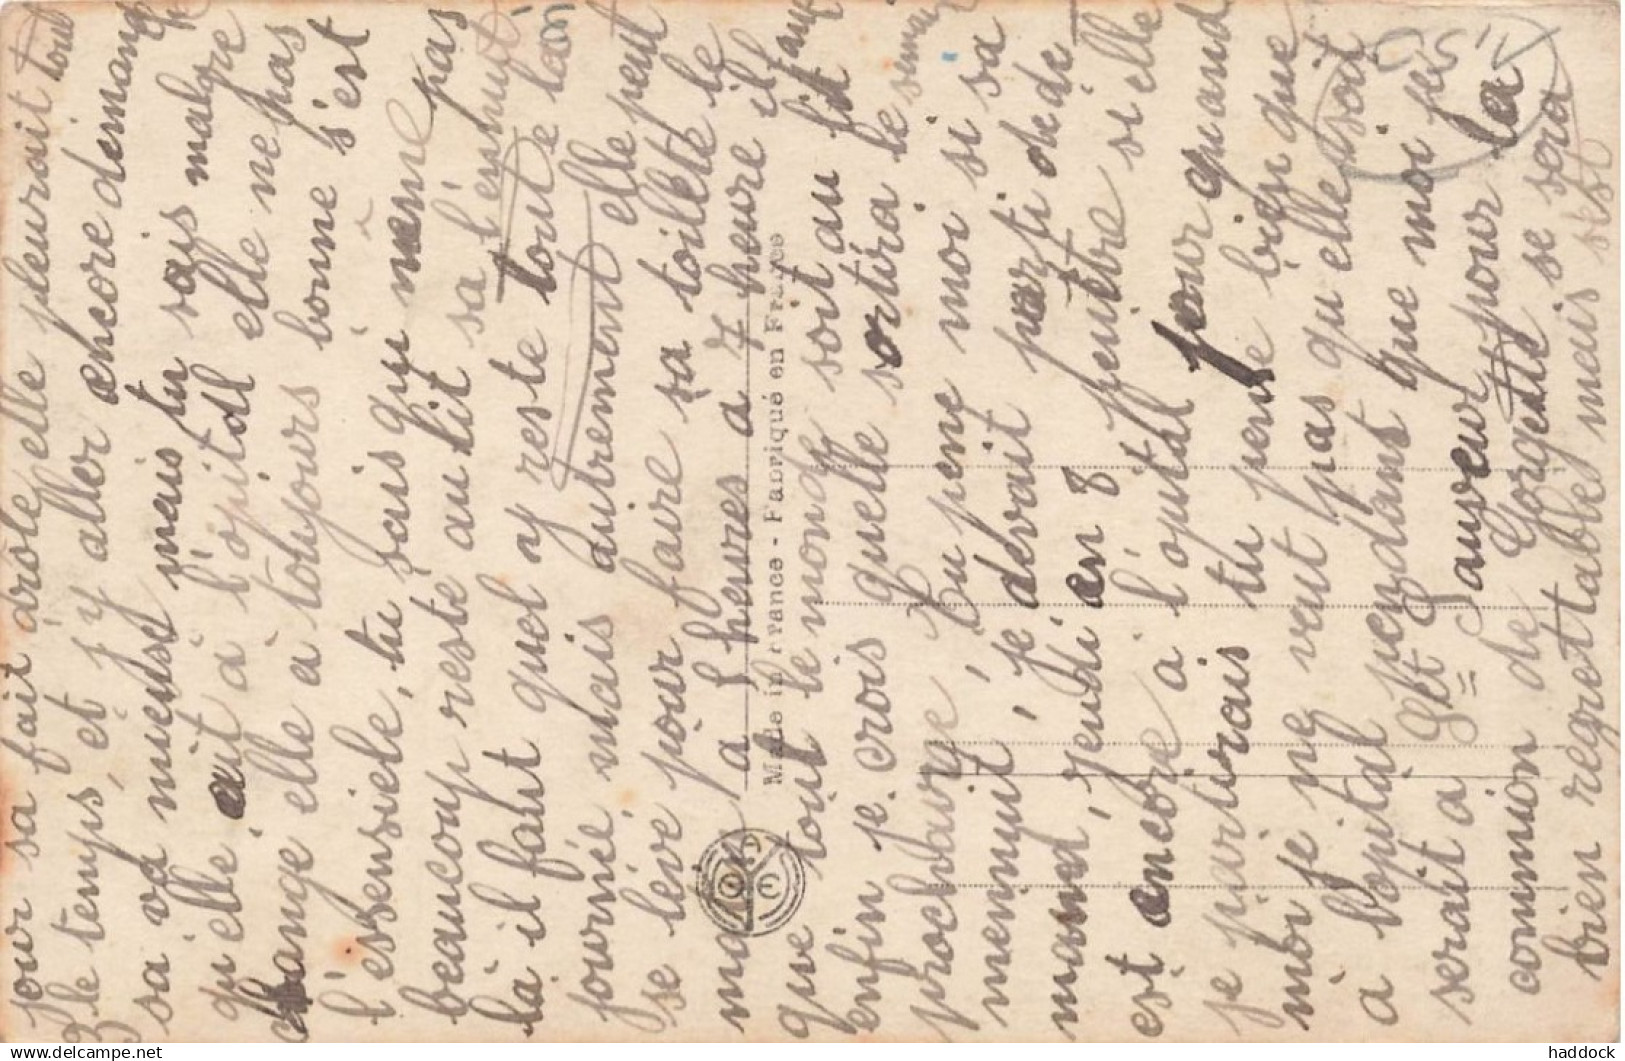 jour sa fait drole elle pleurait tout
le temps, et j'y aller encore demand
sa va mieux mais tu sais malgre
qu'elle ait à l'opitall elle ne pas
change elle a toujours bonne s'est
l'essensiele, tu sais qui même pas
beaucoup resté au lit sa l'ennuit
là il faut quel y reste toute la
journée mais autrement elle peut
se levé pour faire sa toilette le
mat a heures a 7 heure il faut
que tout le monde soit au lit
enfin je crois quelle sortira le semai
prochaine, tu pense moi si sa
m'ennuit, je devait parti de de
mand, jeudi en 8 peutetre si elle
est encore a l'opital pour quand
je partirais tu pense bien que
moi je ne veut pas qu'elle soit
à l'opital pendant que moi je
serait a St Sauveur pour la
commion de Gorgette se sera
bien regrettables mais sest
Made in France - Fabriqué en France
haddock